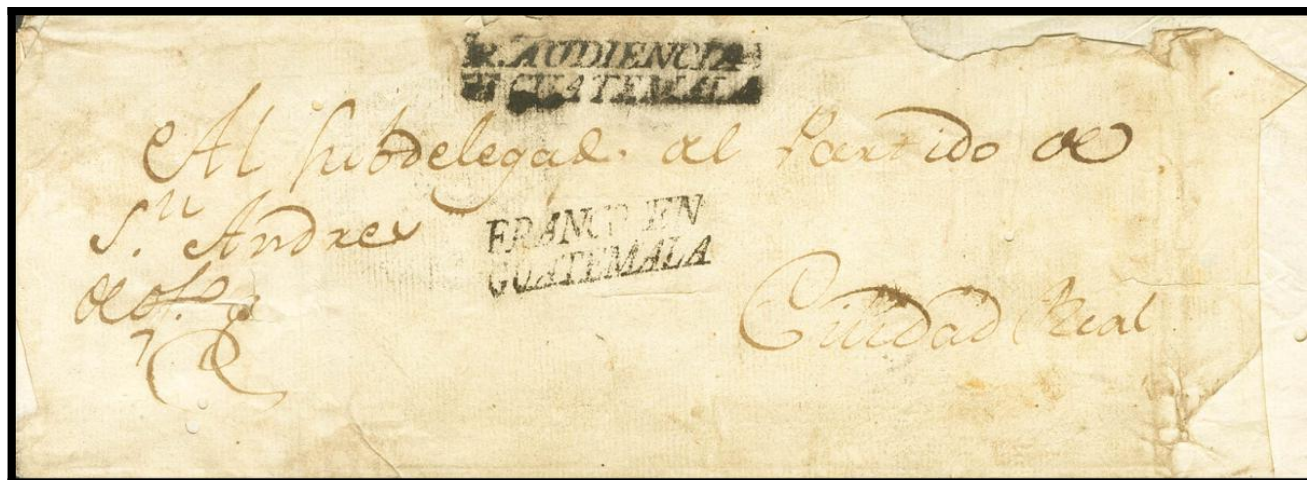 R. AUDIENCIA
DE GUATEMALA
Al Subdelegado. del Partido de
S.n Andres
FRANCO EN
GUATEMALA
de of.o
Ciudad Real